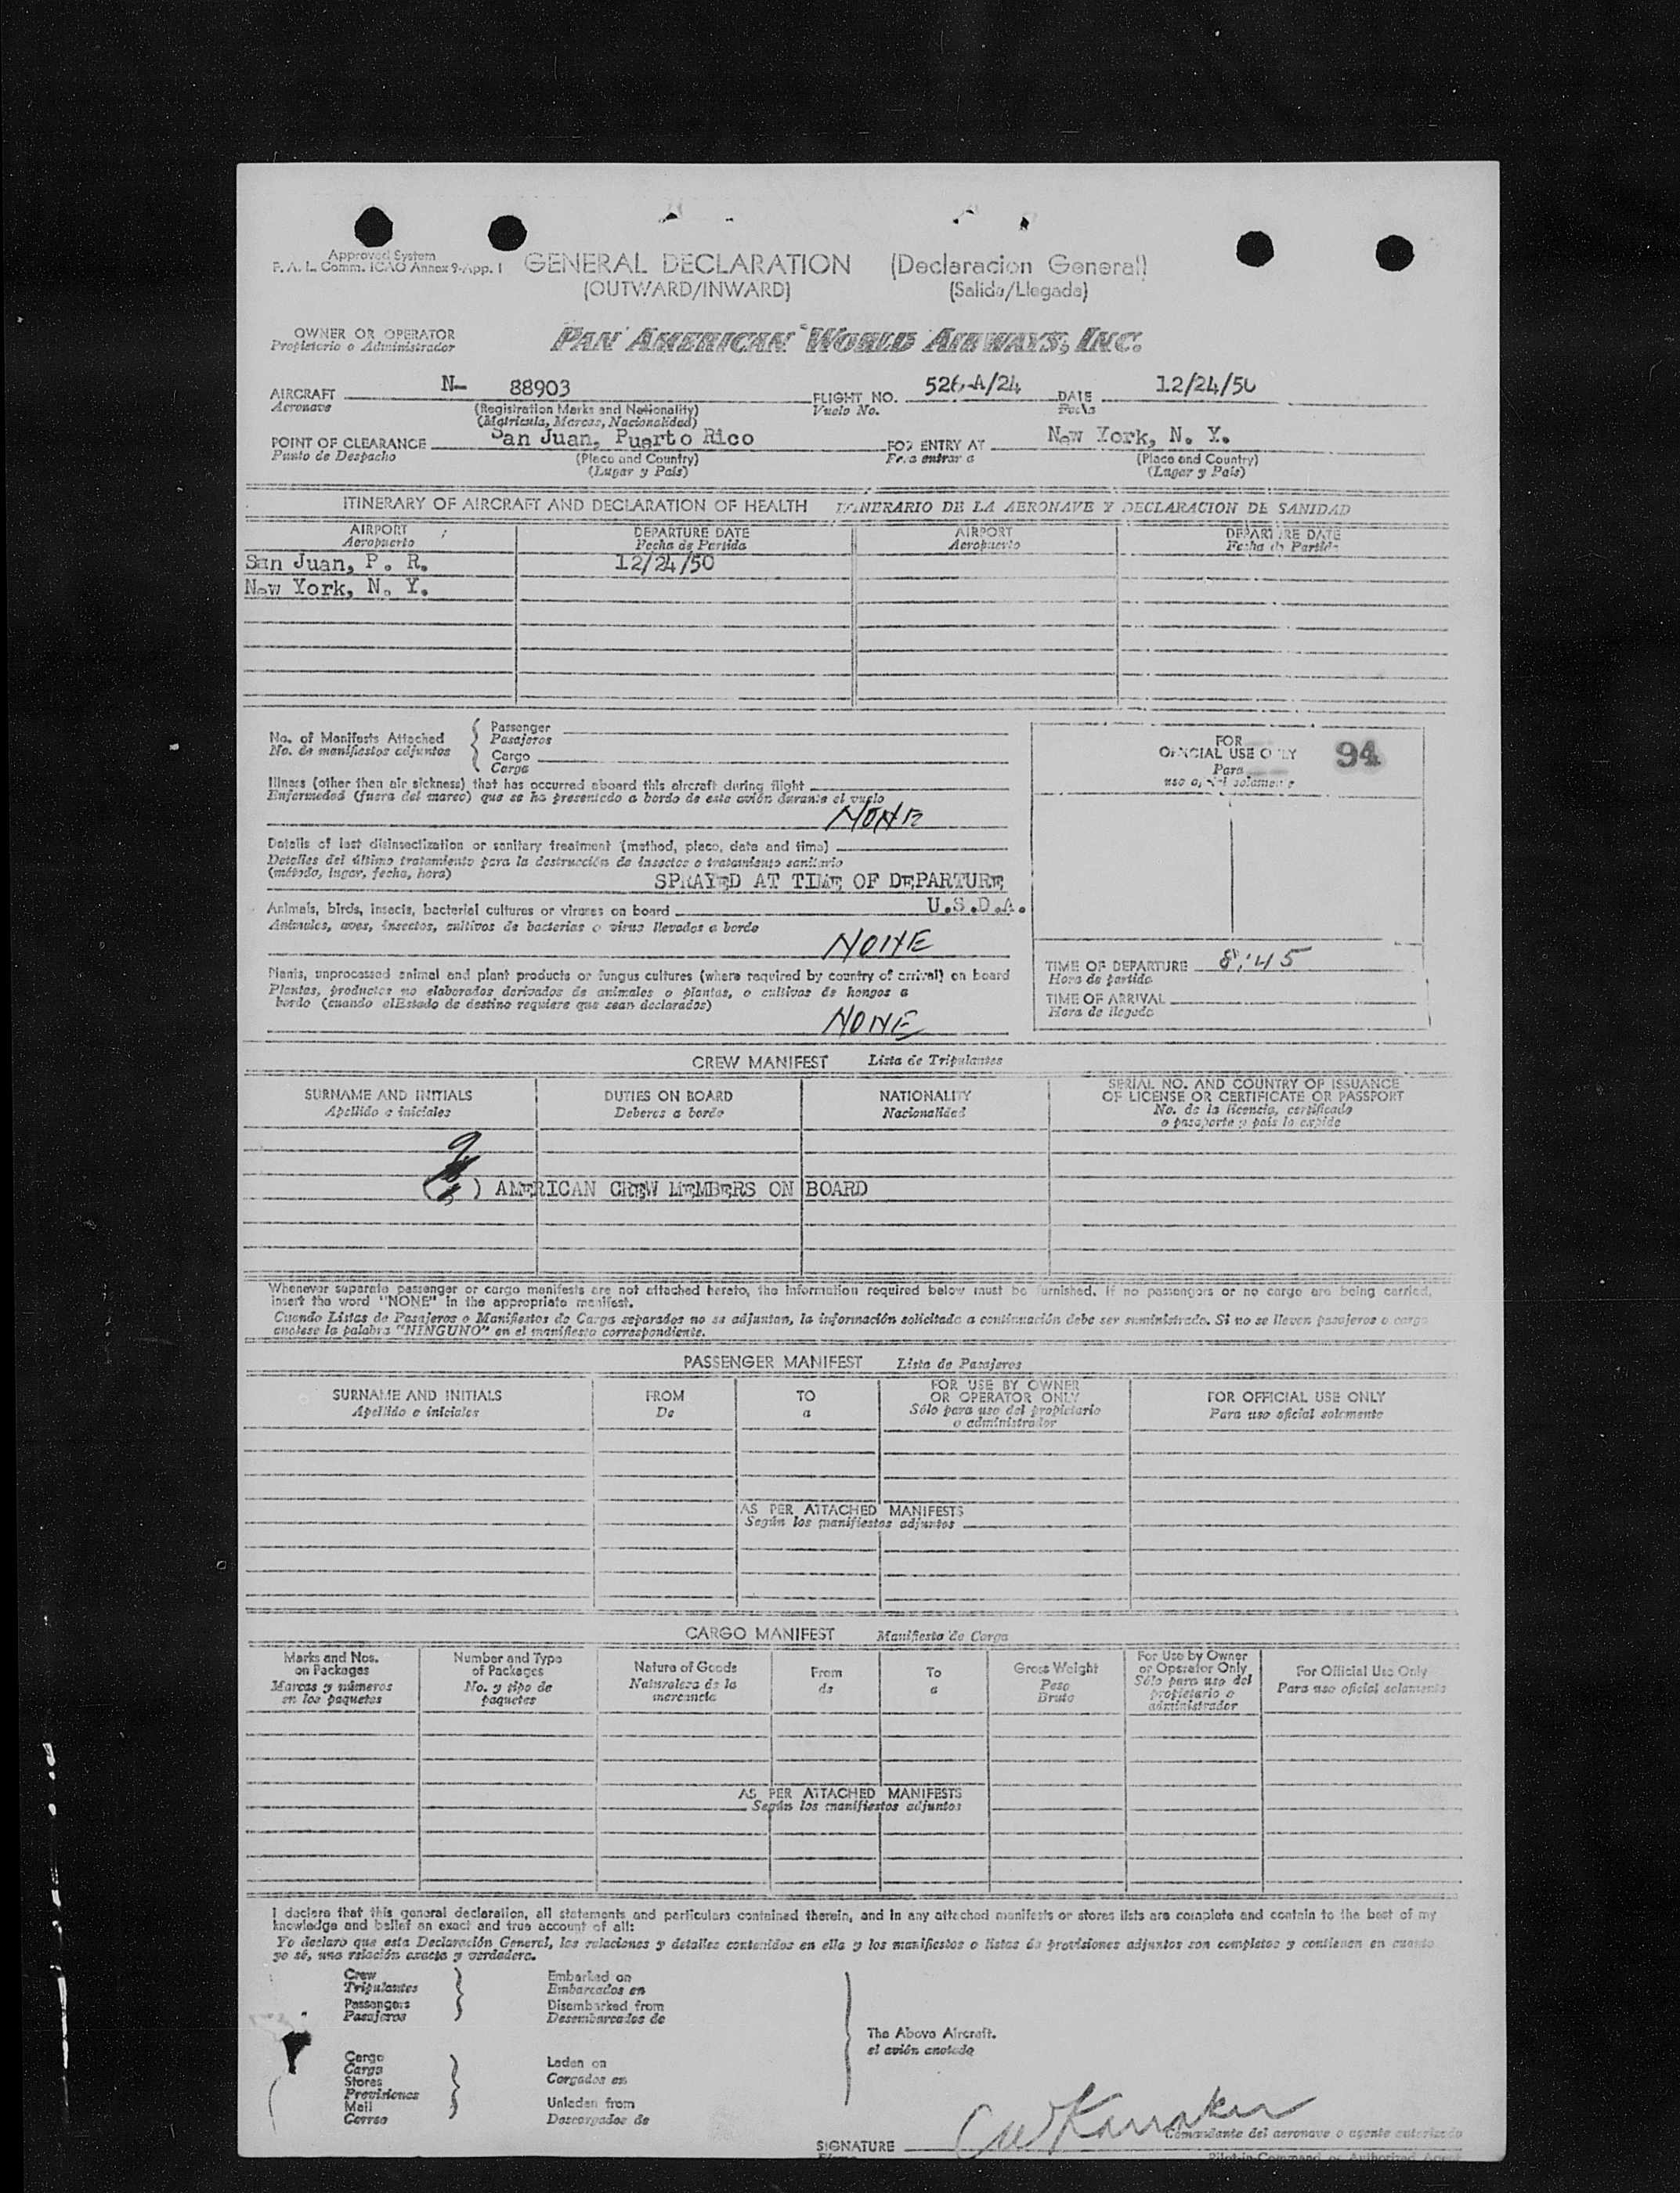 Approved System
F. A. L. Comm. ICAO Annex 9-App. I
GENERAL DECLARATION (Declaracion General)
(OUTWARD/INWARD) (Salida/Llegada)
OWNER OR OPERATOR
Propietario o Administrador
PAN AMERICAN WORLD AIRWAYS, INC.
AIRCRAFT N- 88903 FLIGHT NO. 526-A/24 DATE 12/24/50
Aeronave (Registration Marks and Nationality) Vuelo No. Fecha
(Matricula, Marcas, Nacionalidad)
POINT OF CLEARANCE San Juan, Puerto Rico FOR ENTRY AT New York, N. Y.
Punto de Despacho (Place and Country) Para entrar a (Place and Country)
(Lugar y País) (Lugar y País)
ITINERARY OF AIRCRAFT AND DECLARATION OF HEALTH ITINERARIO DE LA AERONAVE Y DECLARACION DE SANIDAD
AIRPORT DEPARTURE DATE AIRPORT DEPARTURE DATE
Aeropuerto Fecha de Partida Aeropuerto Fecha de Partida
San Juan, P. R. 12/24/50
New York, N. Y.
No. of Manifests Attached
No. de manifiestos adjuntos
Passenger
Pasajeros
Cargo
Carga
FOR
OFFICIAL USE ONLY 94
Para
uso oficial solamente
Illness (other than air sickness) that has occurred aboard this aircraft during flight
Enfermedad (fuera del mareo) que se ha presentado a bordo de este avión durante el vuelo
NONE
Details of last disinsectization or sanitary treatment (method, place, date and time)
Detalles del último tratamiento para la destrucción de insectos o tratamiento sanitario
(método, lugar, fecha, hora)
SPRAYED AT TIME OF DEPARTURE
U.S.D.A.
Animals, birds, insects, bacterial cultures or viruses on board
Animales, aves, insectos, cultivos de bacterias o virus llevados a bordo
NONE
Plants, unprocessed animal and plant products or fungus cultures (where required by country of arrival) on board
Plantas, productos no elaborados derivados de animales o plantas, o cultivos de hongos a
bordo (cuando elEstado de destino requiere que sean declarados)
NONE
TIME OF DEPARTURE 8:45
Hora de partida
TIME OF ARRIVAL
Hora de llegada
CREW MANIFEST Lista de Tripulantes
SURNAME AND INITIALS DUTIES ON BOARD NATIONALITY SERIAL NO. AND COUNTRY OF ISSUANCE
OF LICENSE OR CERTIFICATE OR PASSPORT
Apellido e iniciales Deberes a bordo Nacionalidad No. de la licencia, certificado
o pasaporte y país lo expide
9
( ) AMERICAN CREW MEMBERS ON BOARD
Whenever separate passenger or cargo manifests are not attached hereto, the information required below must be furnished. If no passengers or no cargo are being carried,
insert the word "NONE" in the appropriate manifest.
Cuando Listas de Pasajeros o Manifiestos de Carga separados no se adjuntan, la información solicitada a continuación debe ser suministrada. Si no se lleven pasajeros o carga
anótese la palabra "NINGUNO" en el manifiesto correspondiente.
PASSENGER MANIFEST Lista de Pasajeros
SURNAME AND INITIALS FROM TO FOR USE BY OWNER
OR OPERATOR ONLY FOR OFFICIAL USE ONLY
Apellido e iniciales De a Sólo para uso del propietario
o administrador Para uso oficial solamente
AS PER ATTACHED MANIFESTS
Según los manifiestos adjuntos
CARGO MANIFEST Manifiesto de Carga
Marks and Nos.
on Packages
Marcas y números
en los paquetes
Number and Type
of Packages
No. y tipo de
paquetes
Nature of Goods
Naturaleza de la
mercancia
From
de
To
a
Gross Weight
Peso
Bruto
For Use by Owner
or Operator Only
Sólo para uso del
propietario o
administrador
For Official Use Only
Para uso oficial solamente
AS PER ATTACHED MANIFESTS
Según los manifiestos adjuntos
I declare that this general declaration, all statements and particulars contained therein, and in any attached manifests or stores lists are complete and contain to the best of my
knowledge and belief an exact and true account of all:
Yo declaro que esta Declaración General, las relaciones y detalles contenidos en ella y los manifiestos o listas de provisiones adjuntos son completos y contienen en cuanto
yo sé, una relación exacta y verdadera.
Crew
Tripulantes
Passengers
Pasajeros
Embarked on
Embarcados en
Disembarked from
Desembarcados de
The Above Aircraft.
el avión anotado
Cargo
Carga
Stores
Provisiones
Mail
Correo
Laden on
Cargados en
Unladen from
Descargados de
SIGNATURE
Comandante del aeronave o agente autorizado
Pilot-in-Command or Authorized Agent